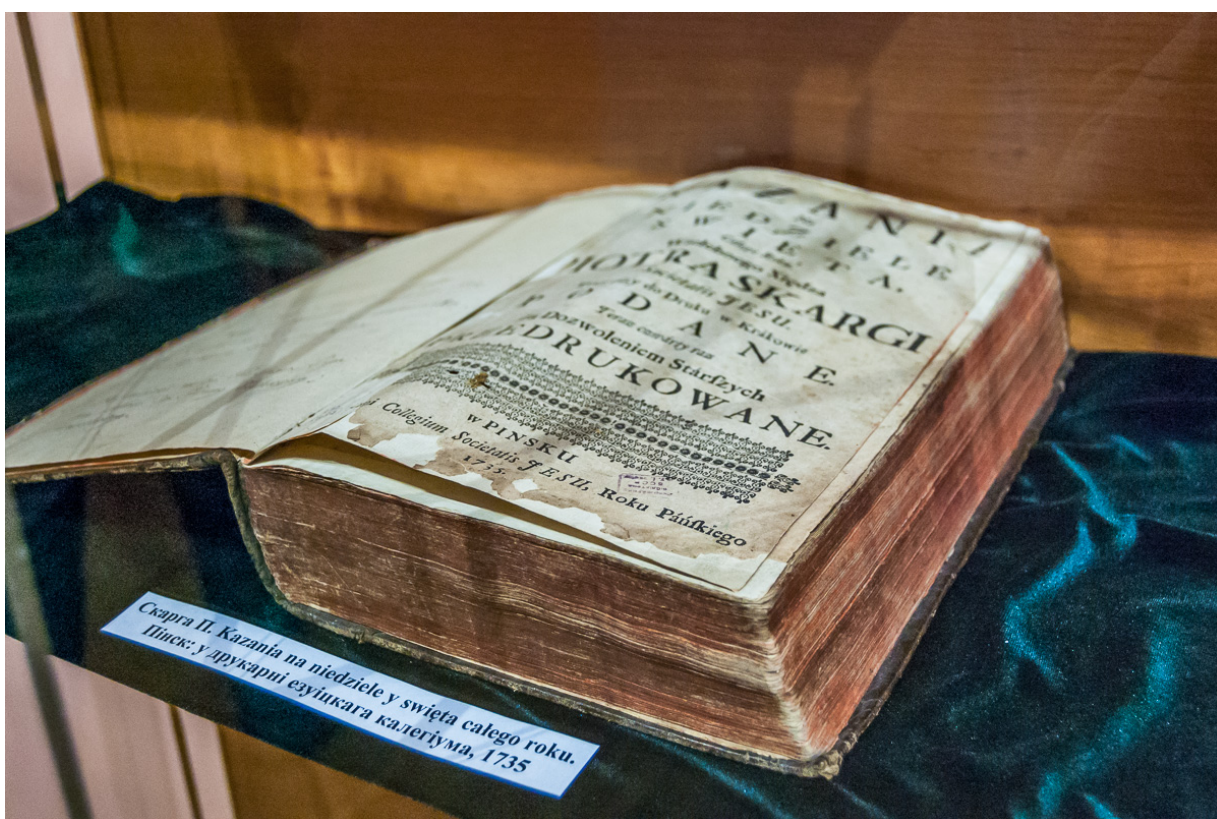 AZANIA
NA
NIEDZIELE
Y
SWIETA,
całego Roku
Wielebnego Xiędza
PIOTRA SKARGI
Societatis JESU.
do Druku w Krákowie
PODANE.
Teraz czwárty raz
Pozwoleniem Stárszych
DRUKOWANE.
w PINSKU
Collegium Societatis JESU, Roku Páńſkiego
1735.
Скарга П. Kazania na niedziele y swięta całego roku.
Пінск: у друкарні езуіцкага калегіума, 1735